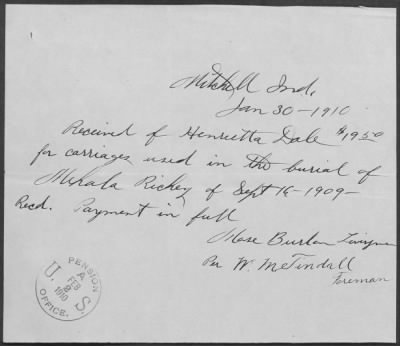 Mitchell Ind,
Jan 30-1910
Received of Henrietta Dale $19.50
for carriages used in the burial of
Rickey of Sept 16-1909-
Recd. Payment in full
Mose Burton
Per W. McTindall
Foreman
U. S. PENSION OFFICE.
FEB 2 1910